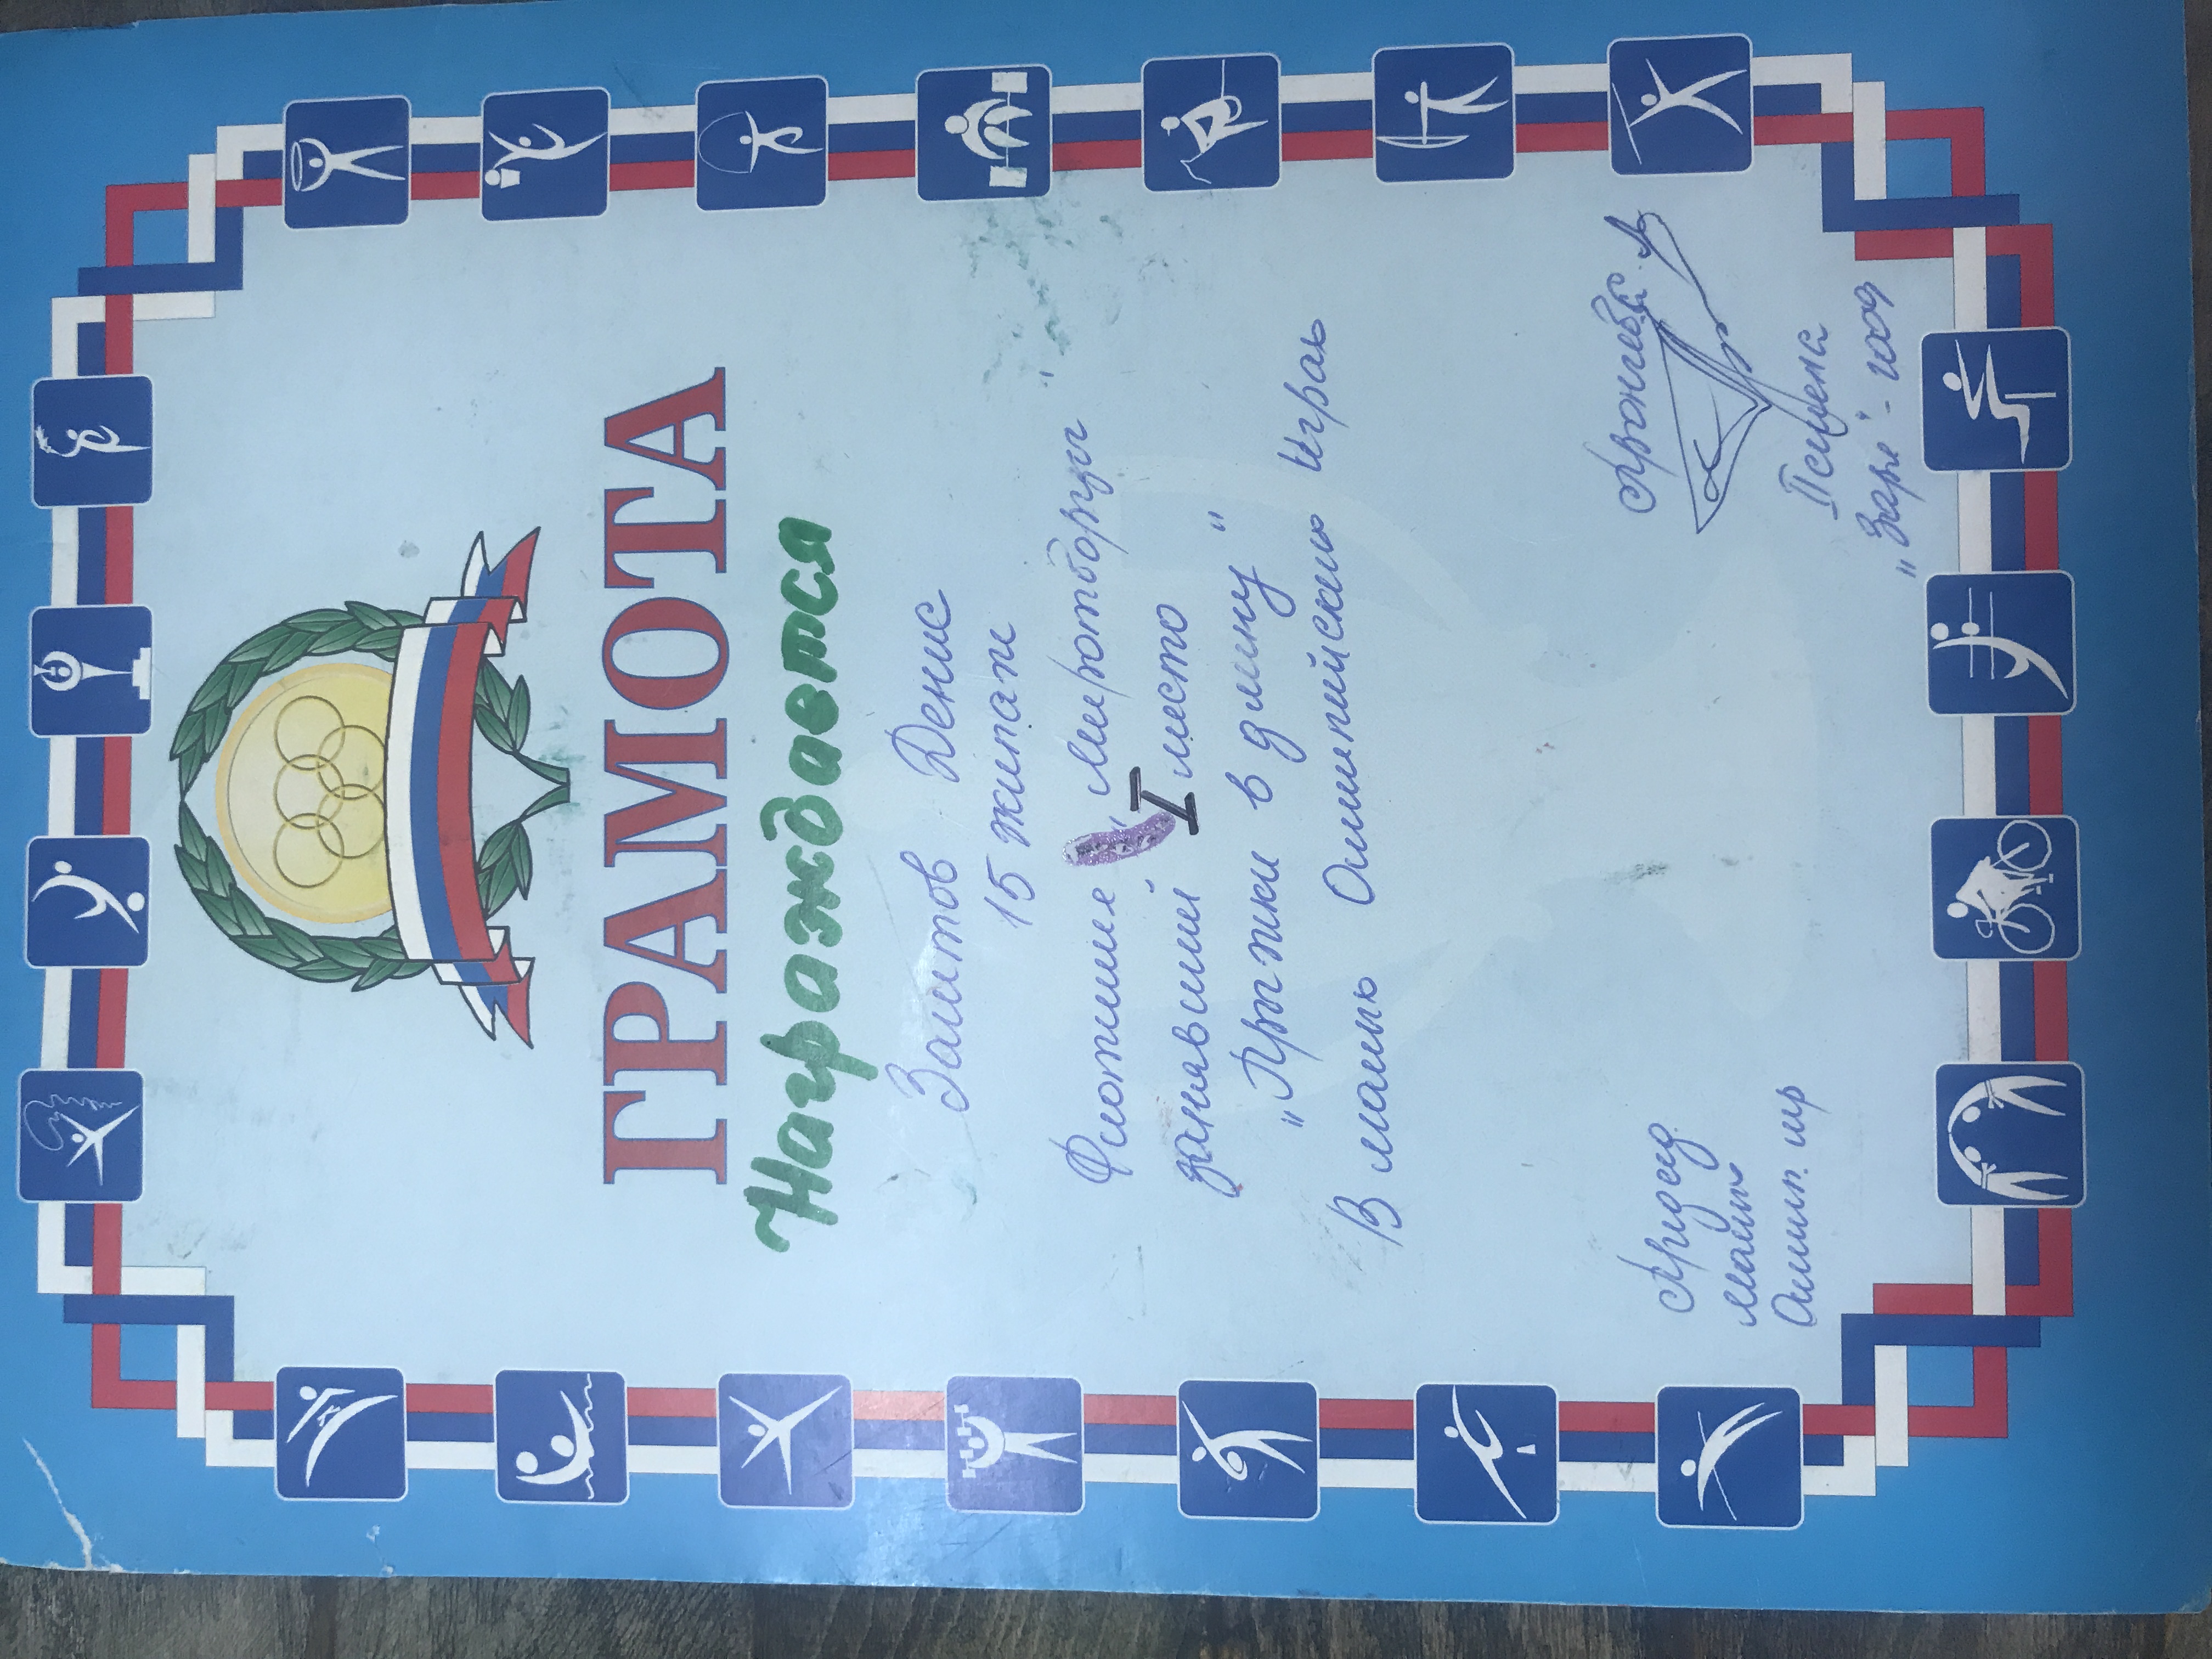 ГРАМОТА
Награждается
Заитов Денис
15 экипаж
Флотилия „Миротворцы"
занявший I место
„Прыжки в длину"
В малых Олимпийских Играх
Председ.
Малых
Олимп. игр
II смена
„Заря" - 2009